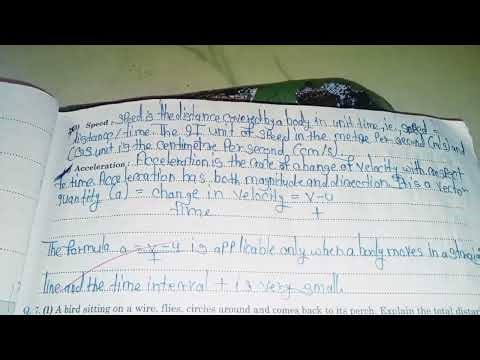 Speed : speed is the distance covered by a body in unit time, i.e., speed =
distance/time. The SI unit of speed in the metre per second (m/s) and
CGS unit is the centimetre per second, (cm/s)
Acceleration : Acceleration is the rate of change of velocity with respect
to time. Acceleration has both magnitude and direction. This is a vector
quantity (a) = change in velocity = v-u
time t
The formula a = v-u is applicable only when a body moves in a straight
t
line and the time interval t is very small.
Q. 7. (1) A bird sitting on a wire, flies, circles around and comes back to its perch. Explain the total distan